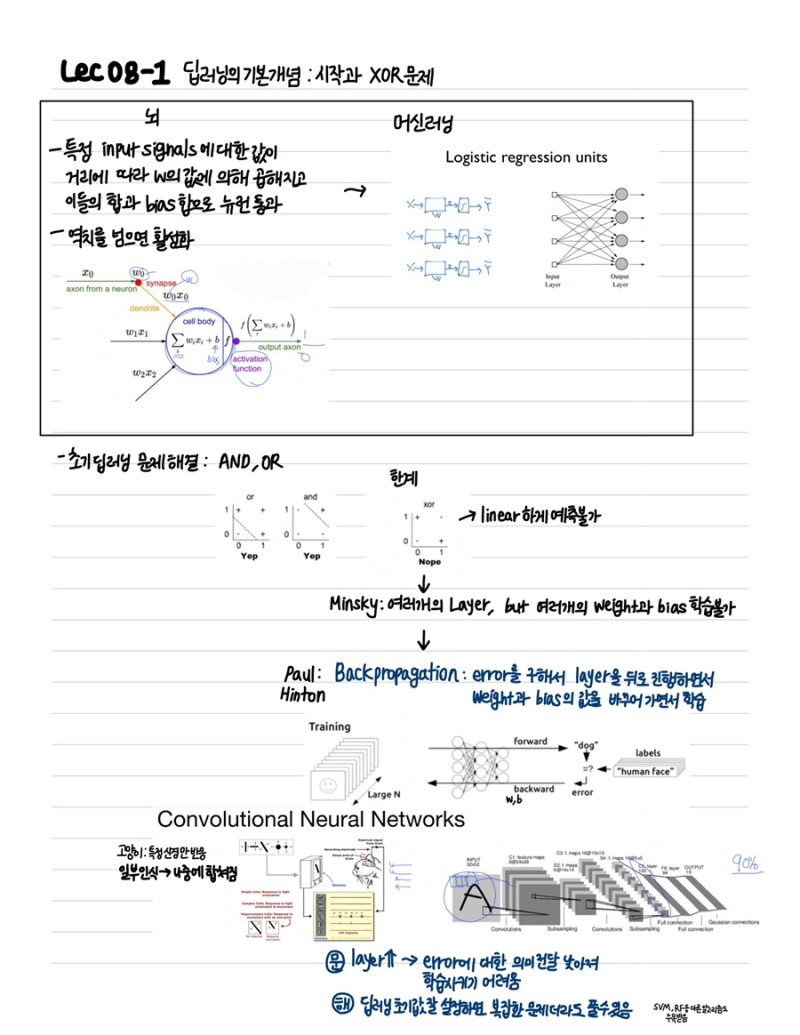 Lec 08-1 딥러닝의 기본개념 : 시작과 XOR 문제
뇌
- 특정 input signals에 대한 값이
거리에 따라 w의 값에 의해 곱해지고
이들의 합과 bias 합으로 뉴런 통과
- 역치를 넘으면 활성화
x0
w0
w
axon from a neuron
synapse
w0x0
dendrite
cell body
f(∑ wixi + b)
i
w1x1
∑ wixi + b
i
f
output axon
1
0
bias
activation
function
w2x2
→
머신러닝
Logistic regression units
X → → → Ȳ
W
X → → → Ȳ
W
X → → → Ȳ
W
Input
Layer
Output
Layer
- 초기 딥러닝 문제해결 : AND, OR
한계
or
1 + +
0 - +
0 1
Yep
and
1 - +
0 - -
0 1
Yep
xor
1 + -
0 - +
0 1
Nope
→ linear하게 예측불가
Minsky : 여러개의 Layer, but 여러개의 weight과 bias 학습불가
Paul : Backpropagation : error을 구해서 layer을 뒤로 진행하면서
Hinton weight과 bias의 값을 바꾸어 가면서 학습
Training
Large N
forward
"dog"
labels
=?
"human face"
backward
error
w,b
Convolutional Neural Networks
고양이 : 특정 신경만 반응
일부인식 → 나중에 합쳐짐
Electrical signal
from brain
Recording electrode
Visual area of
brain
Stimulus
Simple Cells: Response to light
orientation
Complex Cells: Response to light
orientation & movement
Hypercomplex Cells: Response to
movement with an end point
No response
Response
(end point)
INPUT
32x32
C1: feature maps
6@28x28
S2: f. maps
6@14x14
C3: f. maps 16@10x10
S4: f. maps 16@5x5
C5: layer
120
F6: layer
84
OUTPUT
10
A
Convolutions
Subsampling
Convolutions
Subsampling
Full connection
Full connection
Gaussian connections
90%
문 layer↑ → error에 대한 의미전달 낮아져
학습시키기 어려움
해 딥러닝 초기값 잘 설정하면 복잡한 문제더라도 풀수있음
SVM, RF등 다른 알고리즘도
주목받음